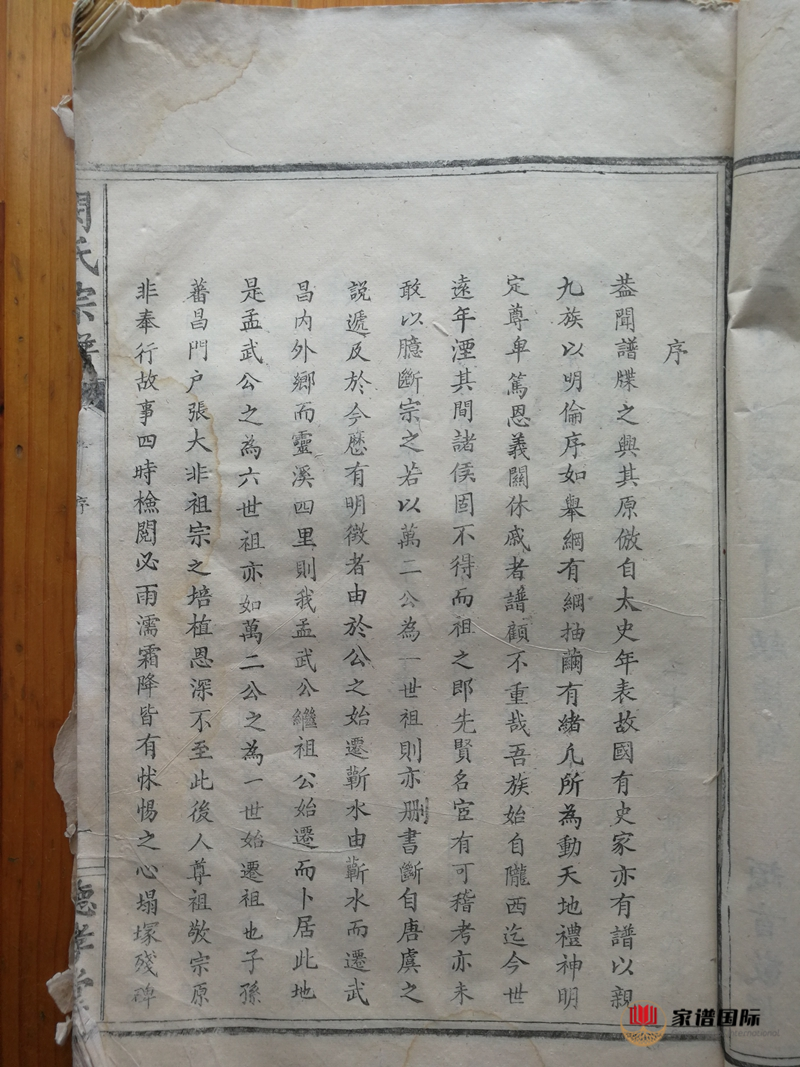 序
葢聞譜牒之興其原倣自太史年表故國有史家亦有譜以親
九族以明倫序如舉網有綱抽繭有緒凡所為動天地禮神明
定尊卑篤恩義關休戚者譜顧不重哉吾族始自隴西迄今世
遠年湮其間諸侯固不得而祖之即先賢名宦有可稽考亦未
敢以臆斷宗之若以萬二公為一世祖則亦册書斷自唐虞之
說遞及於今歷有明徵者由於公之始遷蘄水由蘄水而遷武
昌內外鄉而靈溪四里則我孟武公繼祖公始遷而卜居此地
是孟武公之為六世祖亦如萬二公之為一世始遷祖也子孫
蕃昌門户張大非祖宗之培植恩深不至此後人尊祖敬宗原
非奉行故事四時檢閱必雨濡霜降皆有怵惕之心塌塚殘碑
氏宗譜
序
一
德孝堂
家谱国际